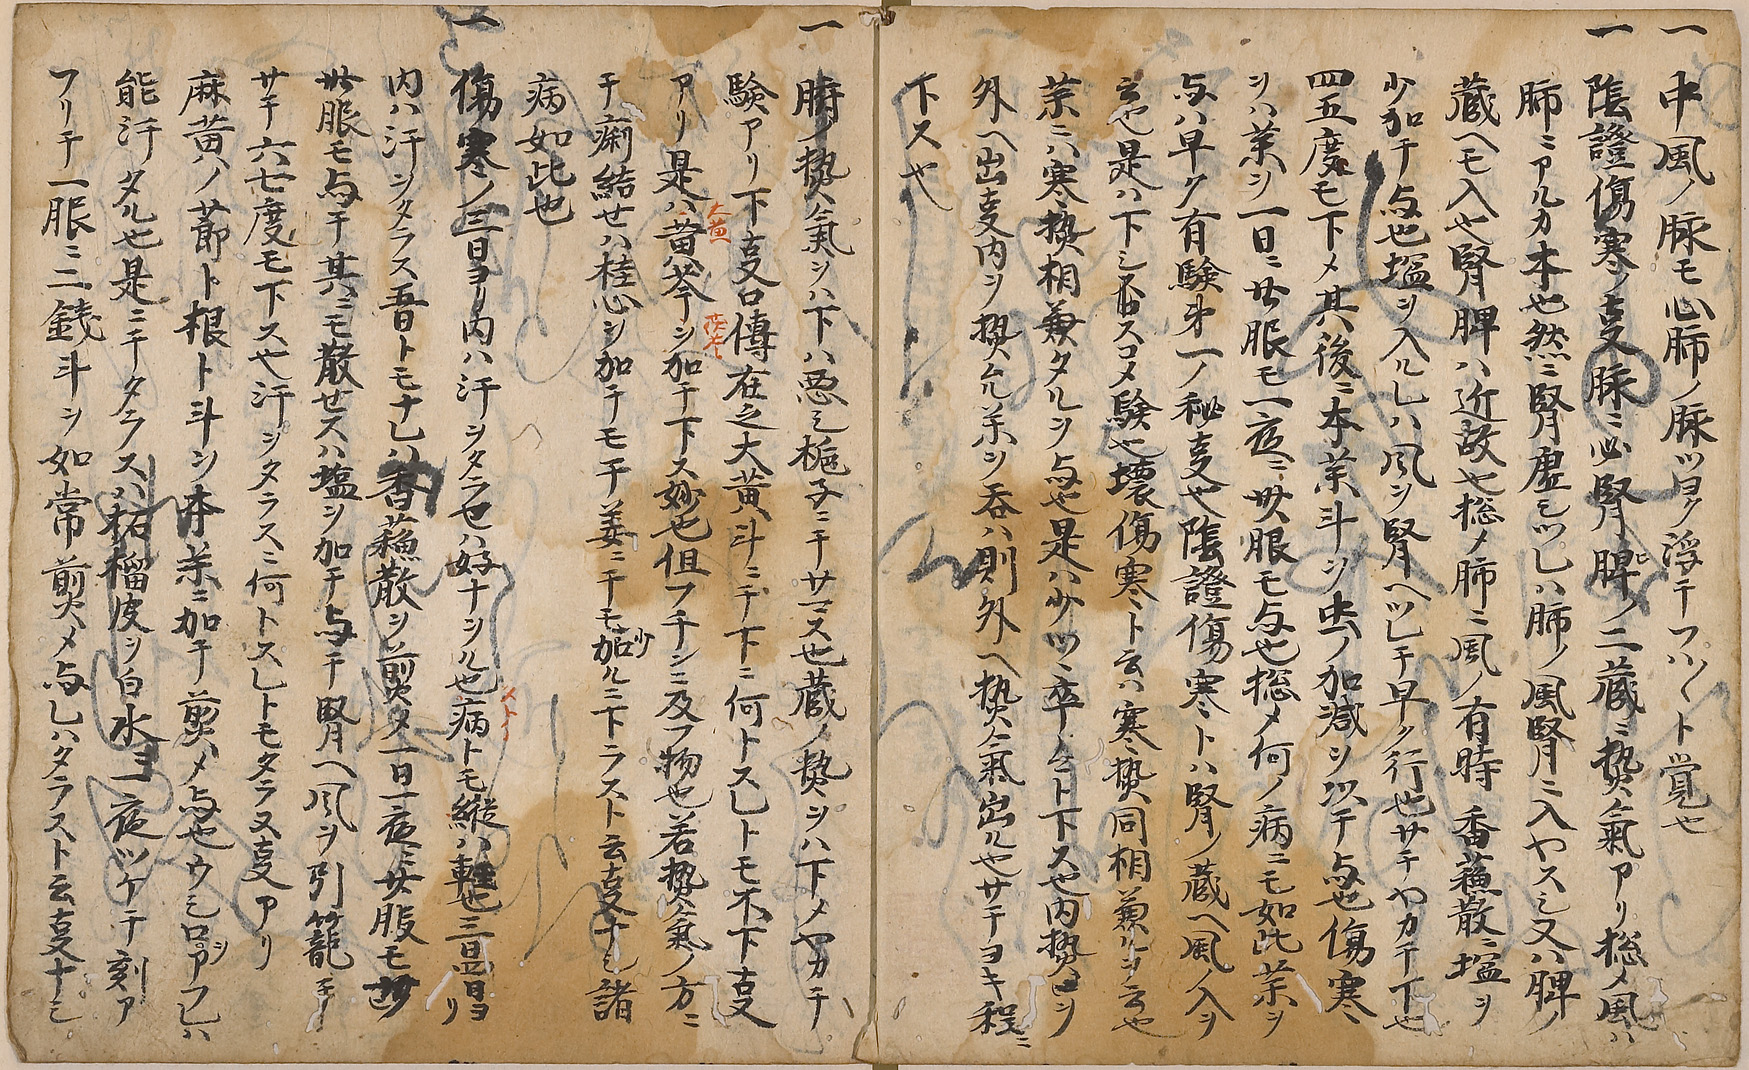 一 中風ノ脉モ心肺ノ脉ツヨク浮テフハ〱ト覚也
一 陰證傷寒ノ叓脉ニ必腎脾ノ二蔵ニ热氣アリ総メ風ハ
肺ニアルカ本也然ニ腎虚シツレハ肺ノ風腎ニ入ヤスシ又ハ脾ノ
蔵ヘモ入也腎脾ハ近故也総メ肺ニ風ノ有時番蘓散ニ塩ヲ
少加テ与也塩ヲ入ルレハ風ヲ腎ヘツレテ早ク行也サテヤカテ下也
四五度モ下メ其後ニ本藥斗ヲ虫ノ加減ヲ以テ与也傷寒
ヲハ藥ヲ一日ニ廿服モ一夜ニ廿服モ与也総メ何ノ病ニモ如此藥ヲ
与ハ早ク有験才一ノ秘叓也陰證傷寒トハ腎ノ蔵ヘ風ノ入ヲ
云也是ハ下シスコメ験也壞傷寒ト云ハ寒热同相兼ルヲ云也
藥ニハ寒热相兼タルヲ与也是ハ少ツヽ下ス也内热ヲ
外ヘ出叓内ヲ热藥ヲ吞ハ則外ヘ热氣出ル也サテヨキ程ニ
下ス也
一 時ノ热氣ヲハ下ハ悪シ梔子ニテサマス也蔵ノ热ヲハ下メヤカテ
験アリ下叓口傳在之大黄斗ニテ下ニ何トスレトモ不下叓
アリ是ハ黄芩ヲ加テ下ス妙也但フテンニ及フ物也若热氣ノ方ニ
テ痢結セハ桂心ヲ加テモ干姜ニテモ少加ルニ下ラスト云叓ナシ諸
病如此也
一 傷寒ノ三日ヨリ内ハ汗ヲタラセハ好ナヲル也病トモ縦ハ軽也三日四日ヨリ
内ハ汗ヲタラス吾トモナレハ香蘓散ヲ煎タ一日一夜ニ廿服モ
卅服モ与テ其ニモ散セスハ塩ヲ加テ与テ腎ヘ風ヲ引籠テ
サテ六七度モ下ス也汗ヲタラスニ何トスレトモタラヌ叓アリ
麻黄ハノ節ト根ト斗ヲ本藥ニ加テ煎メ与也ウシロアフレハ
能汗タル也是ニテタラスハ柘榴皮ヲ白水ヨ一夜ツケテ刻ア
フリテ一服ニ二銭斗ヲ如常煎メ与レハタラスト云叓ナシ